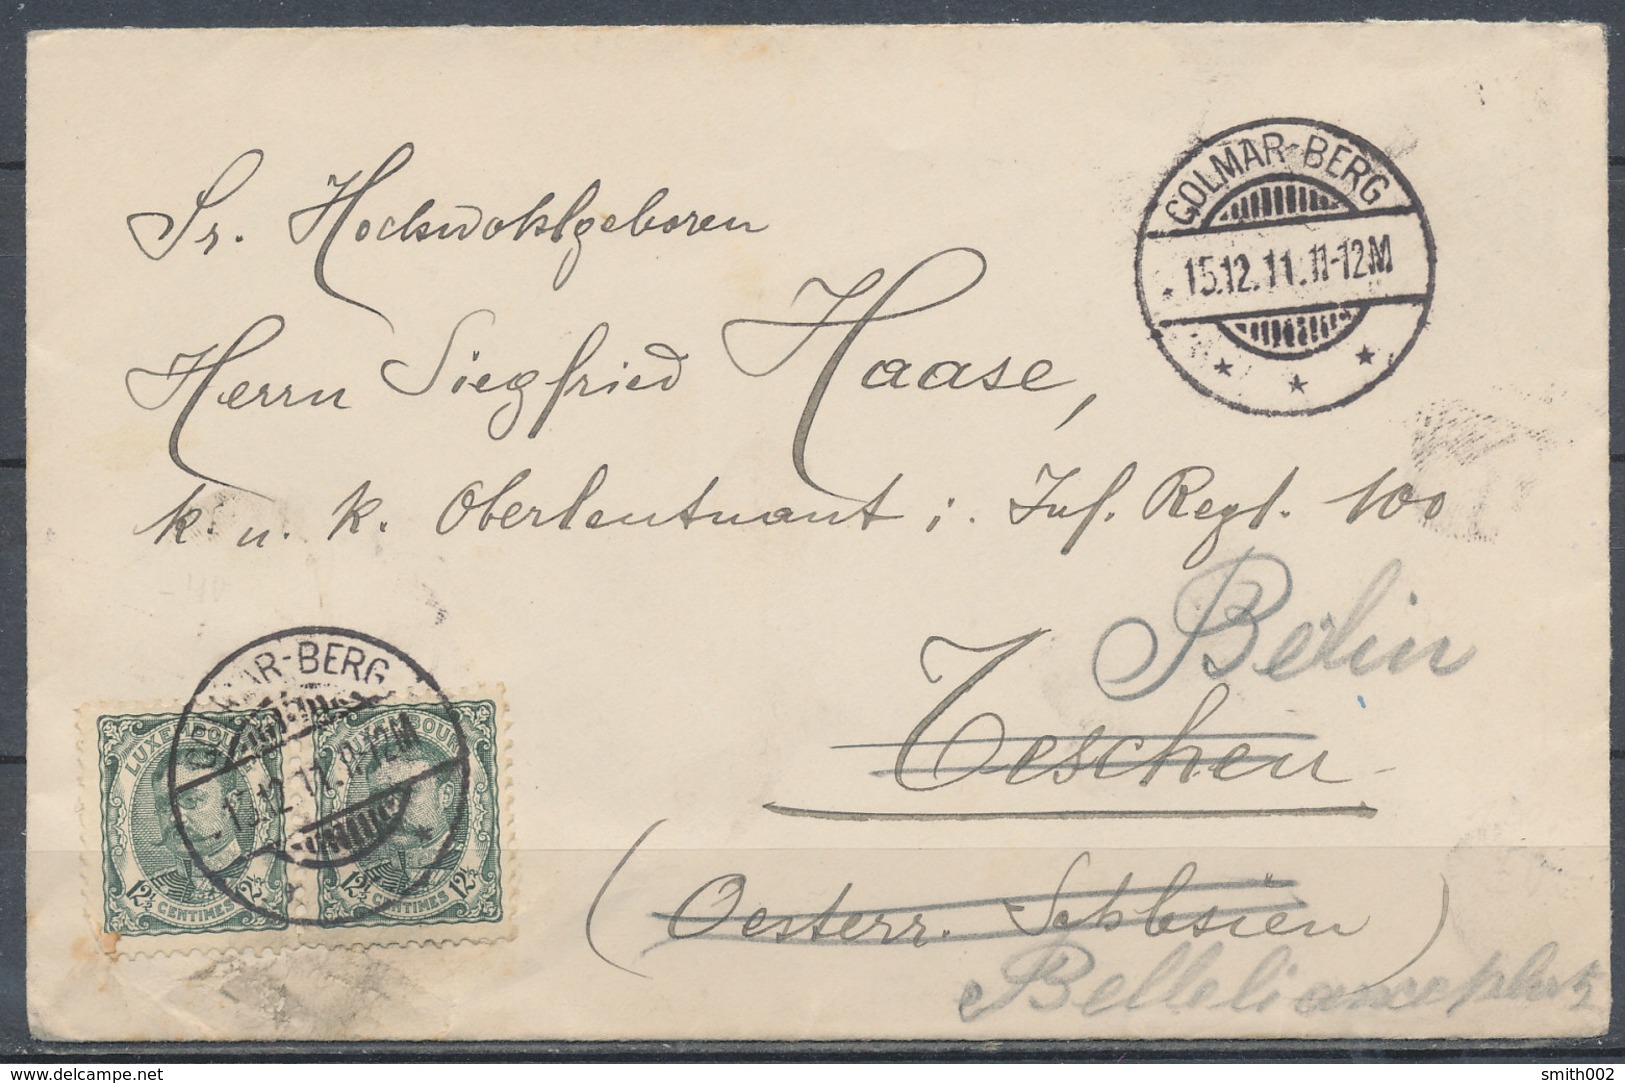 COLMAR-BERG
15.12.11.11-12M
Sr. Hochwohlgeboren
Herrn Siegfried Haase,
k. u. k. Oberleutnant i. Inf. Regt. 100
Berlin
Teschen
(Oesterr. Schlesien)
Bellelianceplatz
COLMAR-BERG
15.12.11.11-12M
LUXEMBOURG
12½ 12½
CENTIMES
LUXEMBOURG
12½ 12½
CENTIMES
www.delcampe.net
smith002